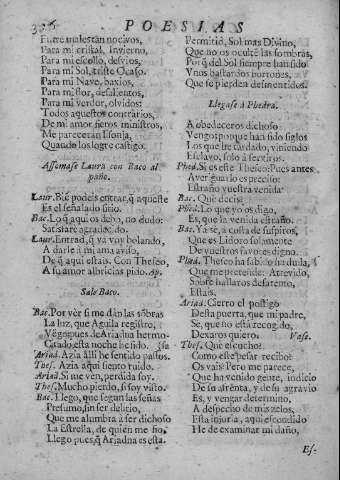 POESIAS
Para mi cristal, invierno,
Para mi escollo, desvios,
Para mi Sol, triste Ocaso.
Para mi Nave, baxios,
Para mi flor, desalientos,
Para mi verdor, olvidos:
Todos aquestos contrarios,
De mi amor fieros ministros,
Me pareceran lisonja,
Quando los logre castigo.
Assomase Laura con Baco al
paño.
Laur. Biē podeis entrar, q̄ aqueste
Es el señalado sitio.
Bac. Lo q̄ aqui os debo, no dudo:
Satisfare agradecido.
Laur. Entrad, q̄ yà voy bolando,
A darle à mi ama aviso,
De q̄ aqui estais. Con Theseo,
A su amor albricias pido. Ap.
Sale Baco.
Bac. Por vèr si me dàn las sōbras
La luz, que Aguila registro,
Vēgo pues de Ariadna hermo-
Citado esta noche herido. (sa
Ariad. Azia alli he sentido passos.
Thes. Azia aqui siento ruido.
Ariad. Si me ven, perdida soy.
Thes. Mucho pierdo, si soy visto.
Bac. Llego, que segun las señas
Presumo, sin ser delirio,
Que me alumbra à ser dichoso
La Estrella, de quien me fio,
Llego pues, q̄ Ariadna es esta.
Permitiò, Sol mas Divino,
Que no os oculte las sombras,
Porq̄ del Sol siempre han sido
Vnos bastardos borrones,
Que se pierden desmentidos.
Llegase à Phedra.
A obedeceros dichoso
Vengo; porque han sido siglos
Los que he tardado, viniendo
Esclavo, solo à serviros.
Phed. Si es este Theseo: Pues antes
Averiguarlo es preciso:
Estraño vuestra venida
Bac. Que decis?
Phed. Lo que yo os digo,
Es, que la venida estraño.
Bac. Ya se, a costa de suspiros,
Que es Lidoro solamente
De vuestros favores digno.
Phed. Theseo ha sabido, sin duda,
Que me pretende: Atrevido,
Sobre hallaros desatento,
Estais.
Ariad. Cierro el postigo
Desta puerta, que mi padre,
Se, que no està recogido,
Dexaros quiero. Vase.
Thes. Que escucho!
Como este pesar recibo?
Os vais? Pero me parece,
Que ha venido gente, indicio
De su afrenta, y de su agravio
Es, y vengar determino,
A despecho de mis zelos,
Esta injuria, aqui escondido
He de examinar mi daño,
Es-